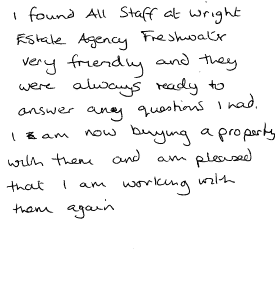 I found All Staff at Wright
Estate Agency Freshwater
very friendly and they
were always ready to
answer any questions I had.
I am now buying a property
with them and am pleased
that I am working with
them again